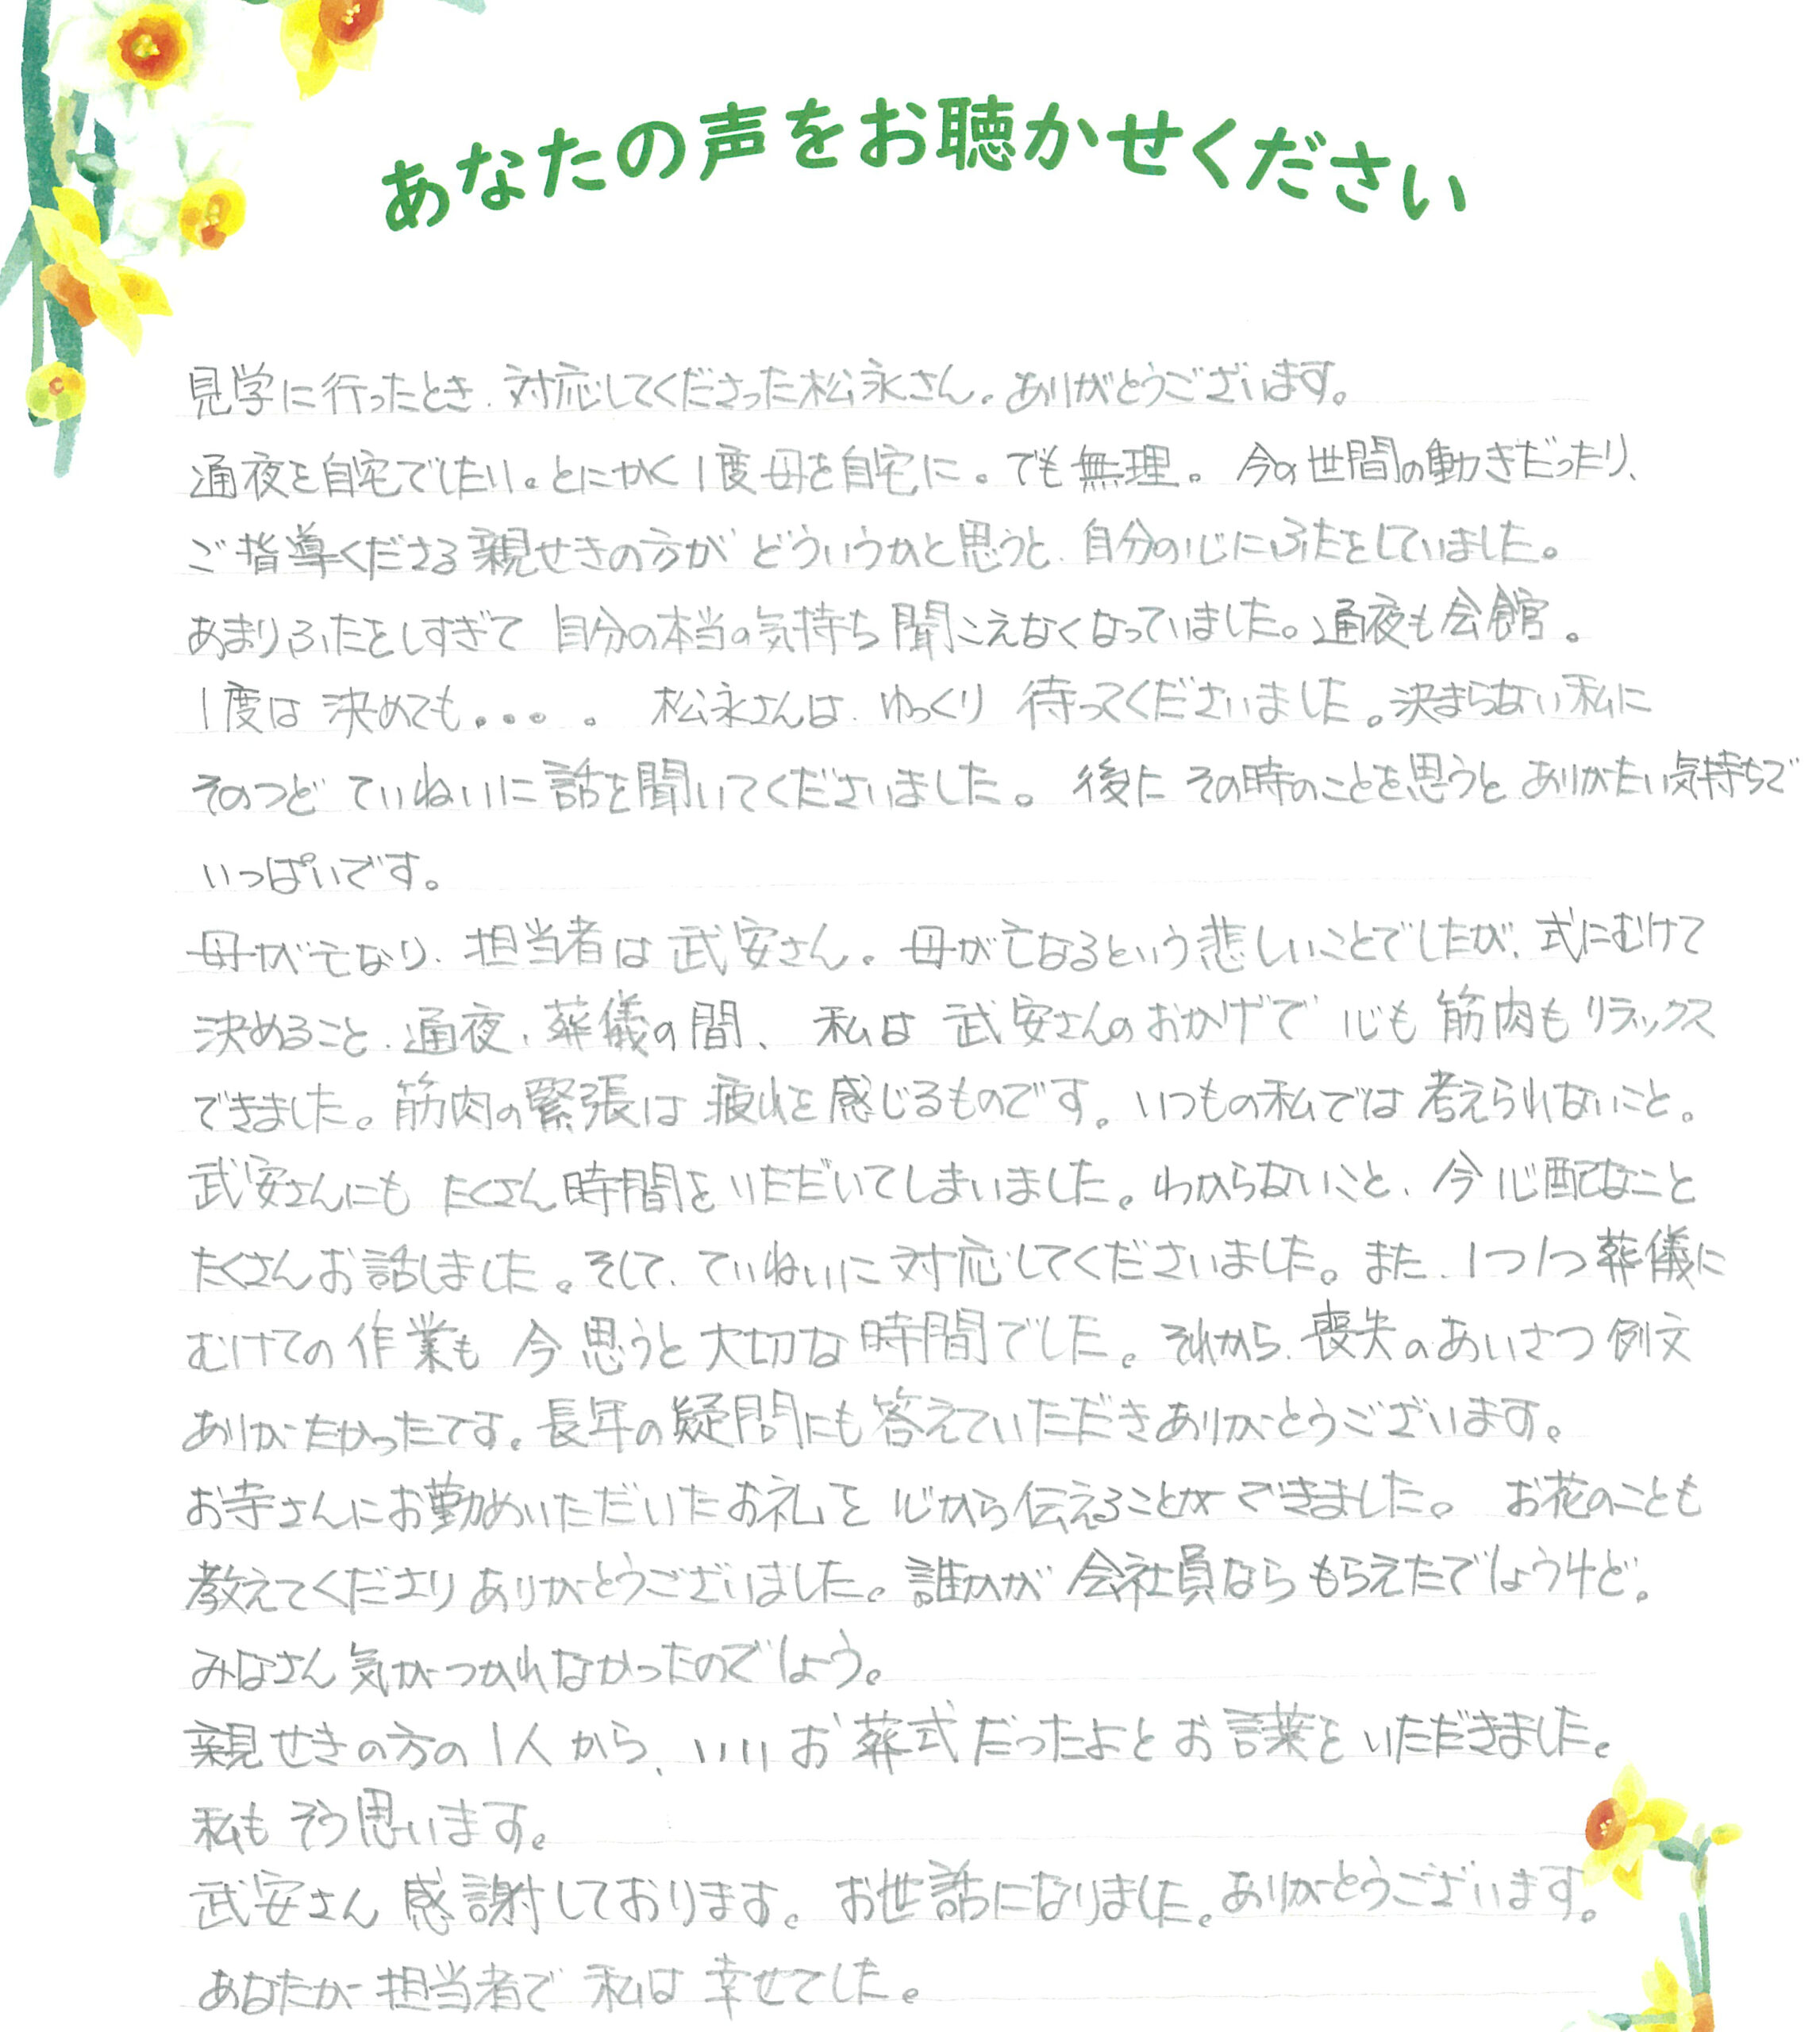 あなたの声をお聴かせください
見学に行ったとき、対応してくださった松永さん。ありがとうございます。
通夜を自宅でしたい。とにかく1度母を自宅に。でも無理。今の世間の動きだったり、
ご指導くださる親せきの方がどういうかと思うと、自分の心にふたをしていました。
あまりふたをしすぎて自分の本当の気持ち聞こえなくなっていました。通夜も会館。
1度は決めても・・・。松永さんは、ゆっくり待ってくださいました。決まらない私に
そのつどていねいに話を聞いてくださいました。後にその時のことを思うとありがたい気持ちで
いっぱいです。
母が亡なり、担当者は武安さん。母が亡なるという悲しいことでしたが、式にむけて
決めること、通夜、葬儀の間、私は武安さんのおかげで心も筋肉もリラックス
できました。筋肉の緊張は疲れを感じるものです。いつもの私では考えられないこと。
武安さんにもたくさん時間をいただいてしまいました。わからないこと、今心配なこと
たくさんお話しました。そして、ていねいに対応してくださいました。また、1つ1つ葬儀に
むけての作業も今思うと大切な時間でした。それから、喪失のあいさつ例文
ありがたかったです。長年の疑問にも答えていただきありがとうございます。
お寺さんにお勤めいただいたお礼を心から伝えることができました。お花のことも
教えてくださりありがとうございました。誰かが会社員ならもらえたでしょうけど。
みなさん気がつかれなかったのでしょう。
親せきの方の1人から、いいお葬式だったよとお言葉をいただきました。
私もそう思います。
武安さん感謝しております。お世話になりました。ありがとうございます。
あなたが担当者で私は幸せでした。